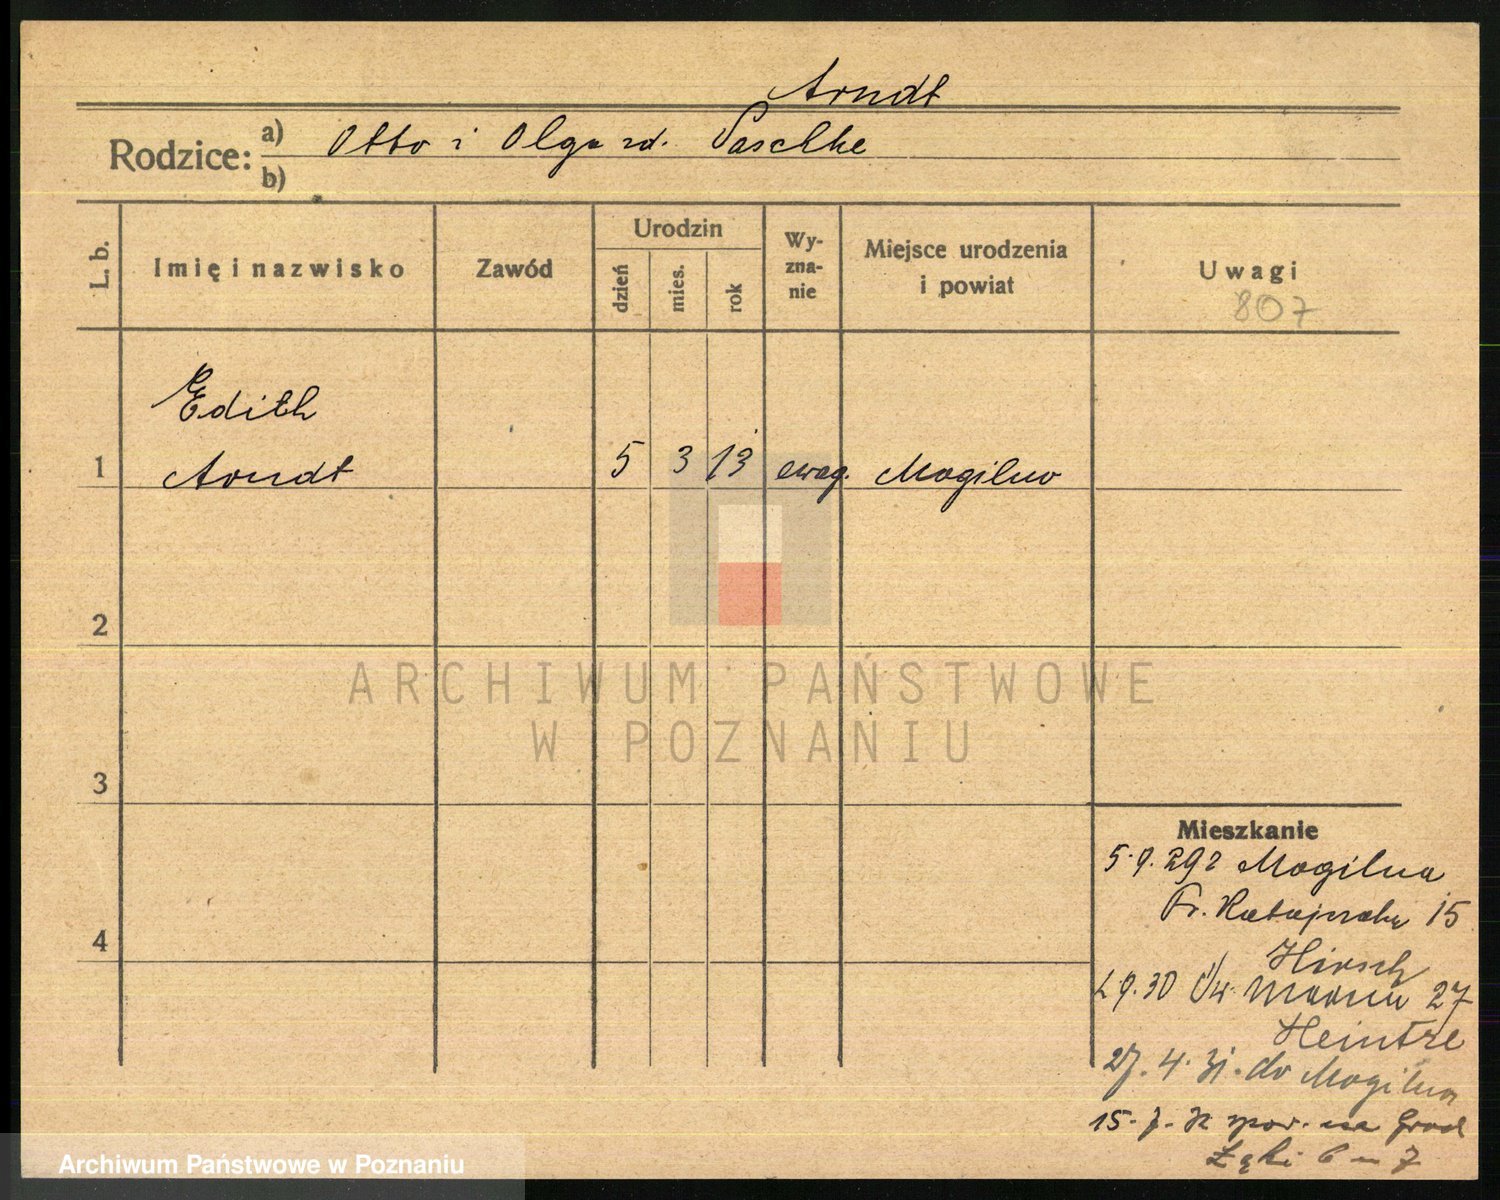 Arndt
Rodzice: a) Otto i Olga zd. Paschke
b)
L. b.
Imię i nazwisko
Zawód
Urodzin
dzień
mies.
rok
Wy-
zna-
nie
Miejsce urodzenia
i powiat
Uwagi
807
Edith
1 Arndt 5 3 13 ewag. Mogilno
2
3
4
ARCHIWUM PAŃSTWOWE
W POZNANIU
Mieszkanie
5.9.29 z Mogilna
Fr. Ratajczaka 15
Hirsch
9.30 Św. Marcin 27
Heintze
27.4.31. do Mogilna
15. na Grod
Łąki 6 m 7
Archiwum Państwowe w Poznaniu